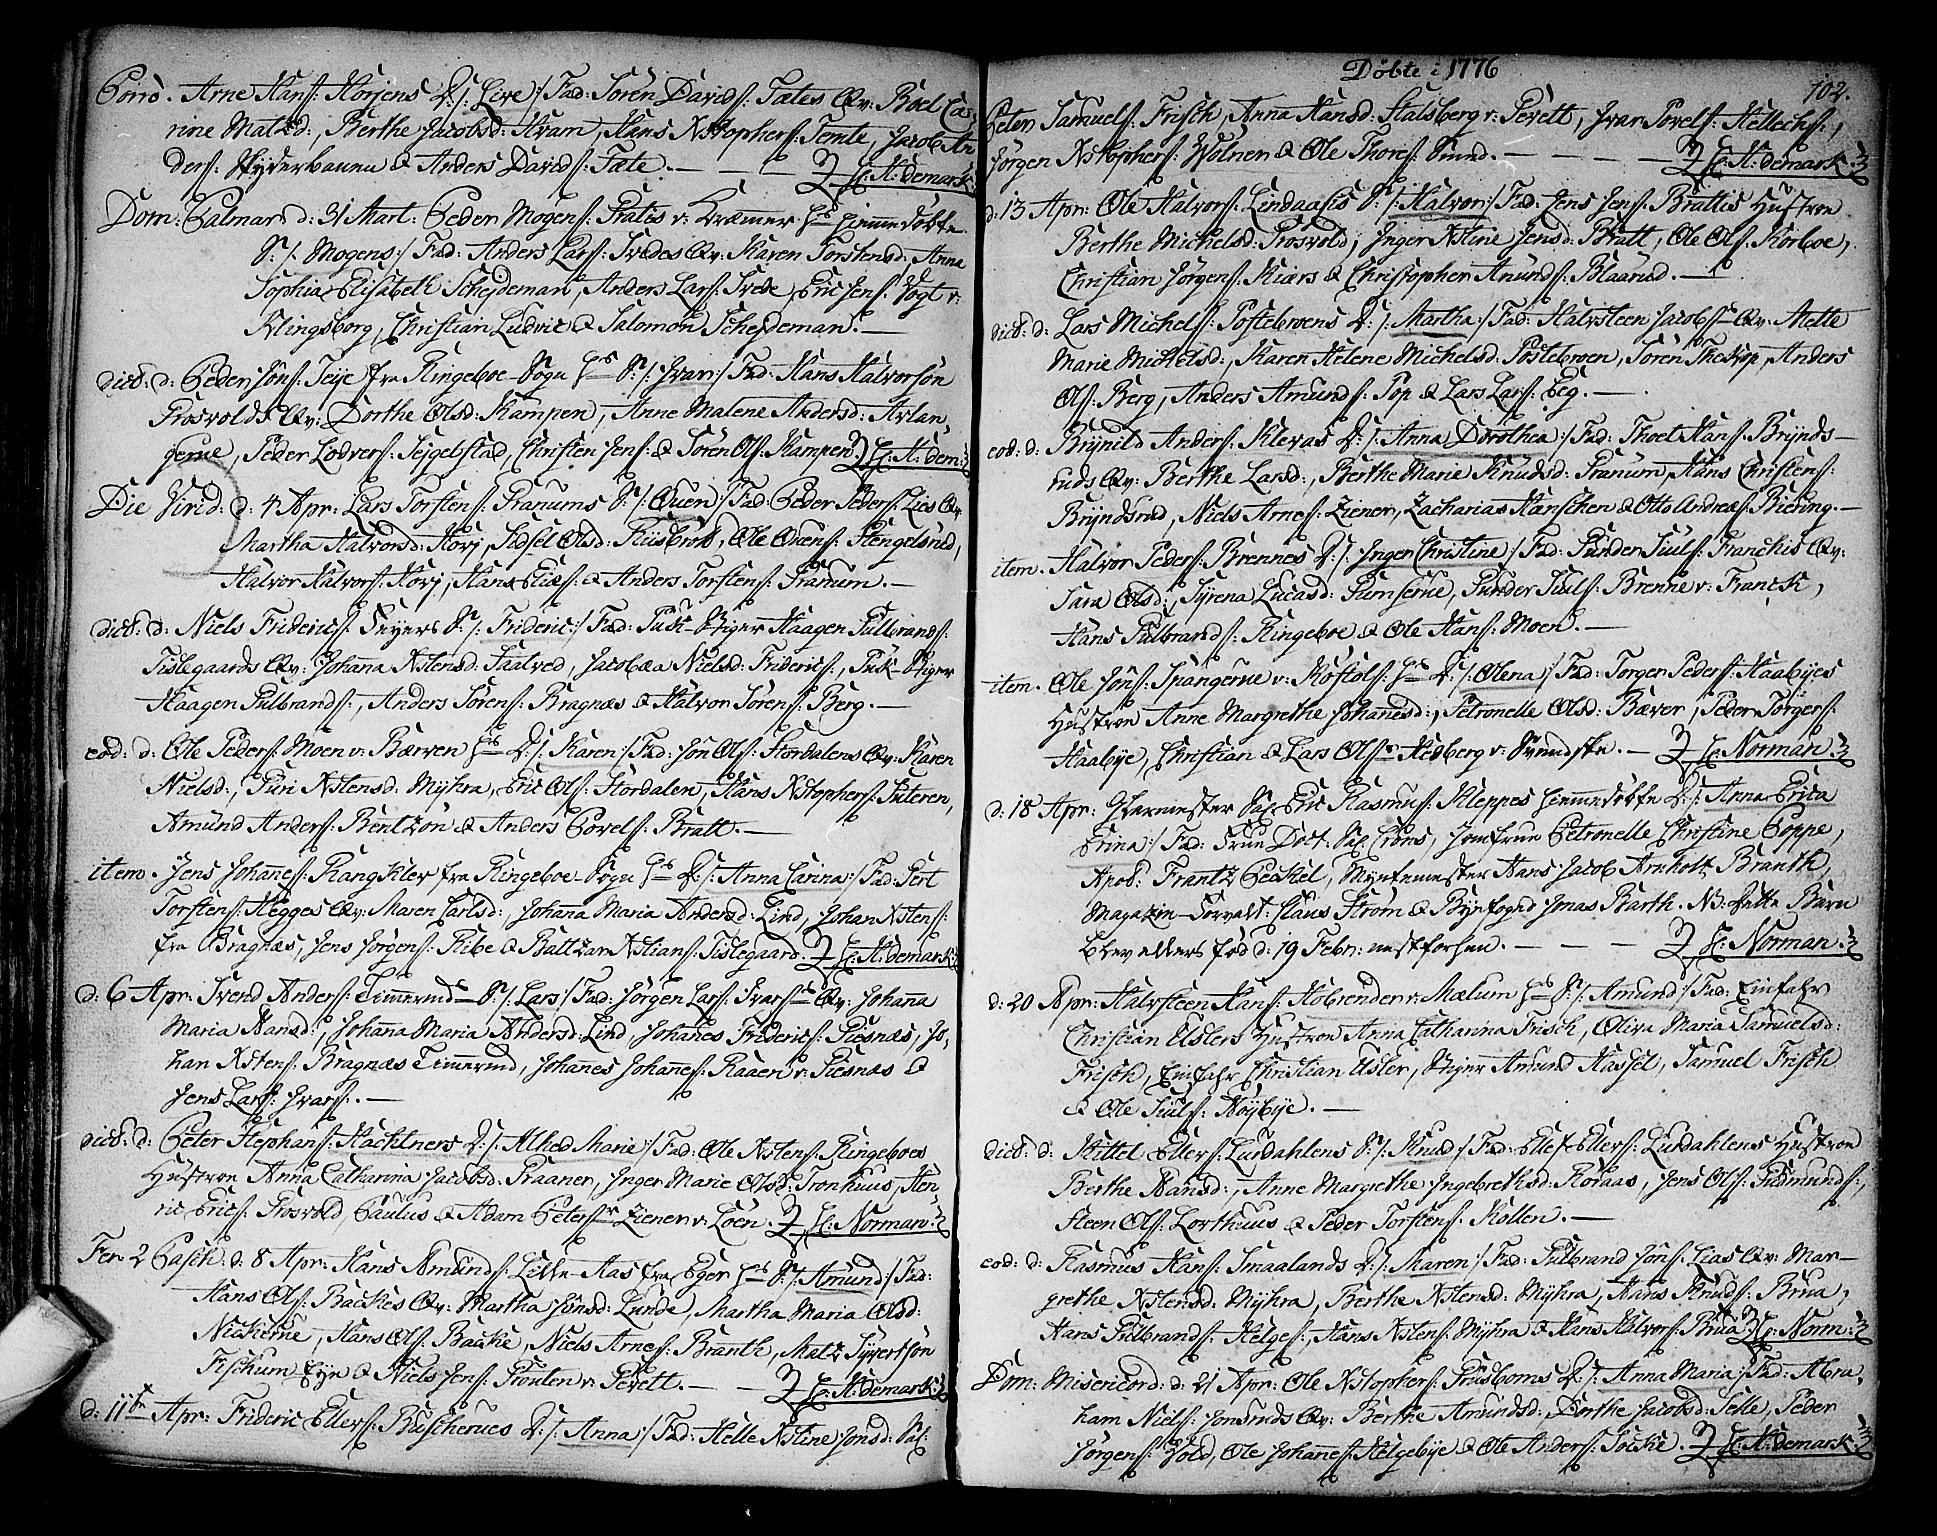 Arne Hans: Horjens D:/: Live :/ Fad: Sören Davids: Tætes Qv: Boel Ca-
rine Matzd:, Berthe Jacobsd: Hvam, Hans Xstophers: Temte, Jacob An
ders: & Anders Davids: Tæte. — — — H: H:demark.
Dom: Palmar: d: 31 Mart: Peder Mogens: v: Kræmer hiemmedöbte
S: /: Mogens :/ Fad: Anders Lars: Svedes Qv: Karen Torstensd: Anna
Sophia Elisabeth Scheydeman, Anders Lars: Svede, Eric Jens: Vogt v:
Klingsborg, Christian Ludvic & Salomon Scheydeman. —
dict: d: Peder Jöns: Teye fra Ringeboe Sogn S: /: Ivar :/ Fad: Hans Halvorsön
Prosvolds Qv: Dorthe Olsd: Kampen, Anne Malene Andersd: Avlan-
gerne, Peder Lodvers: Tejgelstad, Christen Jens: & Sören Ols: Kampen. H: H: dem:
Die Virid: d: 4 Apr: Lars Torstens: Franums S: /: Ouen :/ Fad: Peder Peders: Lies Qv:
Martha Halvorsd: Hovj, Sidsel Olsd: Ole Ouens: Stengelsrud,
Halvor Halvors: Hovj, Hans & Anders Torstens: Franum. —
dict: d: Niels Frideric: Feyers S: /: Frideric :/ Fad: Puk-Stiger Haagen Gulbrands:
Tislegaards Qv: Johanna Xstensd: Saalved, Jacobæa Nielsd: Frideric:, Puk Stiger
Haagen Gulbrands:, Anders Sörens: Bragnæs & Halvor Sörens: Berg. —
eod: d: Ole Peders: Moen v: Bærven D: /: Karen :/ Fad: Jön Ols: Stordalens Qv: Karen
Nielsd:, Guri Xstensd: Myhra, Eric Ols: Stordalen, Hans Xstophers:
Amund Anders: Bentzön & Anders Povels: Bratt. —
item. Jens Johanes: Rangklev fra Ringeboe Sogn D: /: Anna Carina :/ Fad: Gert
Torstens: Hegges Qv: Maren Carlsd:, Johanna Maria Andersd: Lind, Johan Xstens:
fra Bragnæs, Jens Jörgens: Ribe & Baltzar Xstians: Tislegaard. H: H:demark.
d: 6 Apr: Svend Anders: S: /: Lars :/ Fad: Jörgen Lars: Ivars: Qv: Johanna
Maria Hansd:, Johanna Maria Andersd: Lind, Johanes Frideric: Giesnæs, Jo-
han Xstens: Bragnæs Johanes Johanes: Raaen v: Giesnæs &
Jens Lars: Ivars:. —
dict: d: Peter Stephans: Hachtners D: /: Alhed Marie :/ Fad: Ole Xstens: Ringeboes
Hustroe Anna Catharina Jacobsd: Praaner, Inger Marie Olsd: Tronhuus, Hen-
ric Eric: Prosvold, Paulus & Adam Peters: Ziener v: Loen. H: Norman.
Fer: 2 Pasch: d: 8 Apr: Hans Amunds: Lille Aas fra Eger S: /: Amund :/ Fad:
Hans Ols: Backes Qv: Martha Jönsd: Lunde, Martha Maria Olsd:
Hans Ols: Backe, Niels Arnes: Branth, Matz Syvertsön
Fischum Eye & Niels Jens: v: Tevett. — — H: H:demark.
d: 11te Apr: Frideric Ellers: D: /: Anna :/ Fad: Helle Xstine Jonsd: Sal:
Döbte i 1776
102.
Peter Samuels: Frisch, Anna Hansd: Stalsberg v: Tevett, Ivar Povels: Hellechs:,
Jörgen Xstophers: Wölner & Ole Thores: — — — H: H:demark.
d: 13 Apr: Ole Halvors: Lindaasis S: /: Halvor :/ Fad: Jens Jens: Brattis Hustroe
Berthe Michelsd: Prosvold, Inger Xstine Jensd: Bratt, Ole Ols: Korboe,
Christian Jörgens: Kiærs & Christopher Amunds: Blaarud. —
dict: d: Lars Michels: Postebroens D: /: Martha :/ Fad: Halvsteen Jacobs: Qv: Mette
Marie Michelsd:, Karen Helene Michelsd: Postebroen, Sören Anders
Ols: Berg, Anders Amunds: Pop & Lars Lars: Eeg. —
eod: d: Brynild Anders: Klevas D: /: Anna Dorothea :/ Fad: Thoel Hans: Brynds-
ruds Qv: Berthe Larsd:, Berthe Marie Knudsd: Franum, Hans Christens:
Bryndsrud, Niels Arnes: Ziener, Zacharias Hanschen & Otto Andreas: Biering. —
item. Halvor Peders: Brennes D: /: Inger Christine :/ Fad: Gunder Juuls: Franckis Qv:
Sara Olsd:, Syrena Lucasd: Gunder Juuls: Brenne v: Franck,
Hans Gulbrands: Ringeboe & Ole Hans: Moen. —
item. Ole Jöns: Spangerne v: D: /: Olena :/ Fad: Torger Peders: Haabyes
Hustroe Anne Margrethe Johanesd:, Petronelle Olsd: Bæver, Peder Torgers:
Haabye, Christian & Lars Ols: Hedberg v: — H: Norman.
d: 18 Apr: Sal: Eric Rasmus: Kleppes hiemmedöbte D: /: Anna Erica
Erina :/ Fad: Frue Doct: Sal: Jomfrue Petronelle Christine Poppe,
Apoth: Frantz Peckel, Myntemester Hans Jacob Arnholt Branth,
Magazin-Forvalt: Claus Ström & Byefogd Jonas Barth. NB: dette Barn
blev ellers föd d: 19 Febr: nestforhen. — — — H: Norman.
d: 20 Apr: Halvsteen Hans: v: Mælum S: /: Amund :/ Fad: Einfahr
Christian Uslers Hustroe Anna Catharina Frisch, Oliva Maria Samuelsd:
Frisch, Einfahr Christian Usler, Stiger Amund Hassel, Samuel Frisch
& Ole Juuls: Nöybye. —
dict: d: Kittel Ellers: Lurdahlens S: /: Knud :/ Fad: Ellef Ellers: Lurdahlens Hustroe
Berthe Hansd:, Anne Margrethe Ingebrethsd: Roraas, Jens Ols: Gudmunds:,
Steen Ols: Lorthuus & Peder Torstens: Kollen. —
eod: d: Rasmus Hans: Smaalands D: /: Maren :/ Fad: Gulbrand Jöns: Lias Qv: Mar-
grethe Xstensd: Myhra, Berthe Xstensd: Myhra, Hans Knuds: Brua,
Hans Gulbrands: Helges:, Hans Xstens: Myhra & Hans Halvors: Brua. H: Norm:
Dom: Misericord: d: 21 Apr: Ole Xstophers: D: /: Anna Maria :/ Fad: Abra-
ham Niels: Jonsruds Qv: Berthe Amundsd:, Dorthe Jacobsd: Selle, Peder
Jörgens: Vold, Ole Johanes: Helgebye & Ole Anders: H: H:demark.